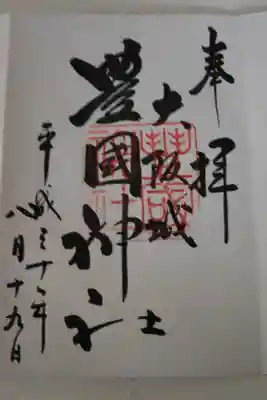 奉拝
大阪城
豊國神社
平成 年
八月十九日